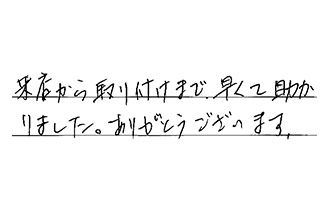 来店から取り付けまで、早くて助か
りました。ありがとうございます。